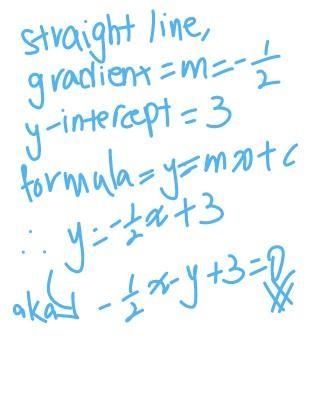 straight line,
gradient = m = -1/2
y-intercept = 3
formula = y = mx + c
∴ y = -1/2x + 3
aka -1/2x - y + 3 = 0